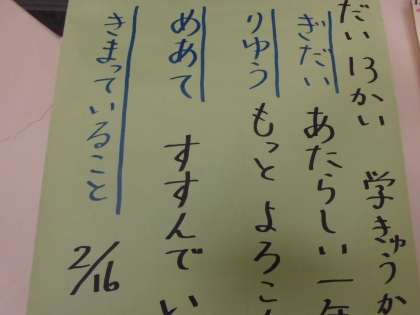 だい13かい 学きゅうか
ぎだい あたらしい一年
りゆう もっとよろこ
めあて すすんでい
きまっていること 2/16